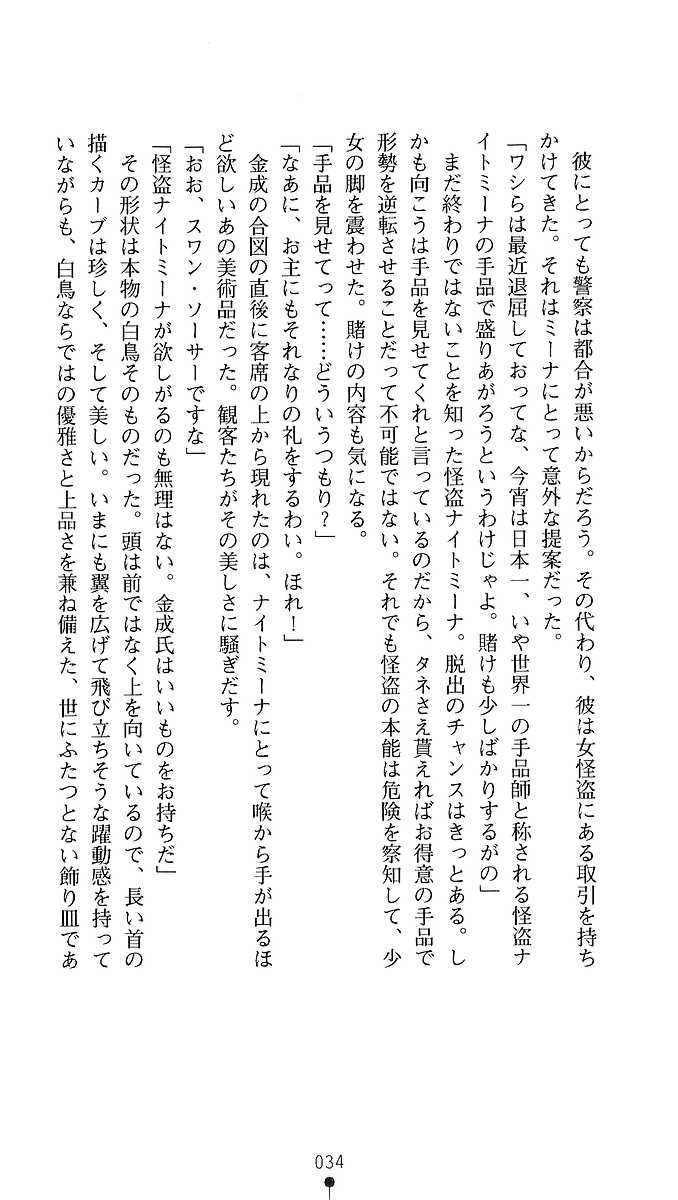 彼にとっても警察は都合が悪いからだろう。その代わり、彼は女怪盗にある取引を持ち
かけてきた。それはミーナにとって意外な提案だった。
「ワシらは最近退屈しておってな、今宵は日本一、いや世界一の手品師と称される怪盗ナ
イトミーナの手品で盛りあがろうというわけじゃよ。賭けも少しばかりするがの」
まだ終わりではないことを知った怪盗ナイトミーナ。脱出のチャンスはきっとある。し
かも向こうは手品を見せてくれと言っているのだから、タネさえ貰えればお得意の手品で
形勢を逆転させることだって不可能ではない。それでも怪盗の本能は危険を察知して、少
女の脚を震わせた。賭けの内容も気になる。
「手品を見せてって……どういうつもり？」
「なあに、お主にもそれなりの礼をするわい。ほれ！」
金成の合図の直後に客席の上から現れたのは、ナイトミーナにとって喉から手が出るほ
ど欲しいあの美術品だった。観客たちがその美しさに騒ぎだす。
「おお、スワン・ソーサーですな」
「怪盗ナイトミーナが欲しがるのも無理はない。金成氏はいいものをお持ちだ」
その形状は本物の白鳥そのものだった。頭は前ではなく上を向いているので、長い首の
描くカーブは珍しく、そして美しい。いまにも翼を広げて飛び立ちそうな躍動感を持って
いながらも、白鳥ならではの優雅さと上品さを兼ね備えた、世にふたつとない飾り皿であ
034